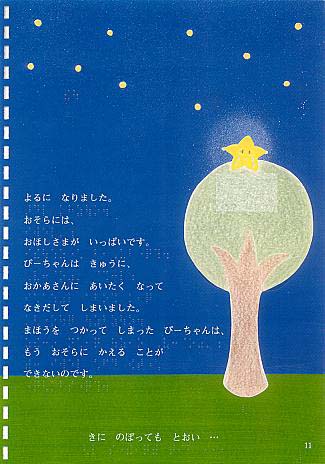 よるに なりました。
おそらには、
おほしさまが いっぱいです。
ぴーちゃんは きゅうに、
おかあさんに あいたく なって
なきだして しまいました。
まほうを つかって しまった ぴーちゃんは、
もう おそらに かえる ことが
できないのです。
きに のぼっても とおい …
11